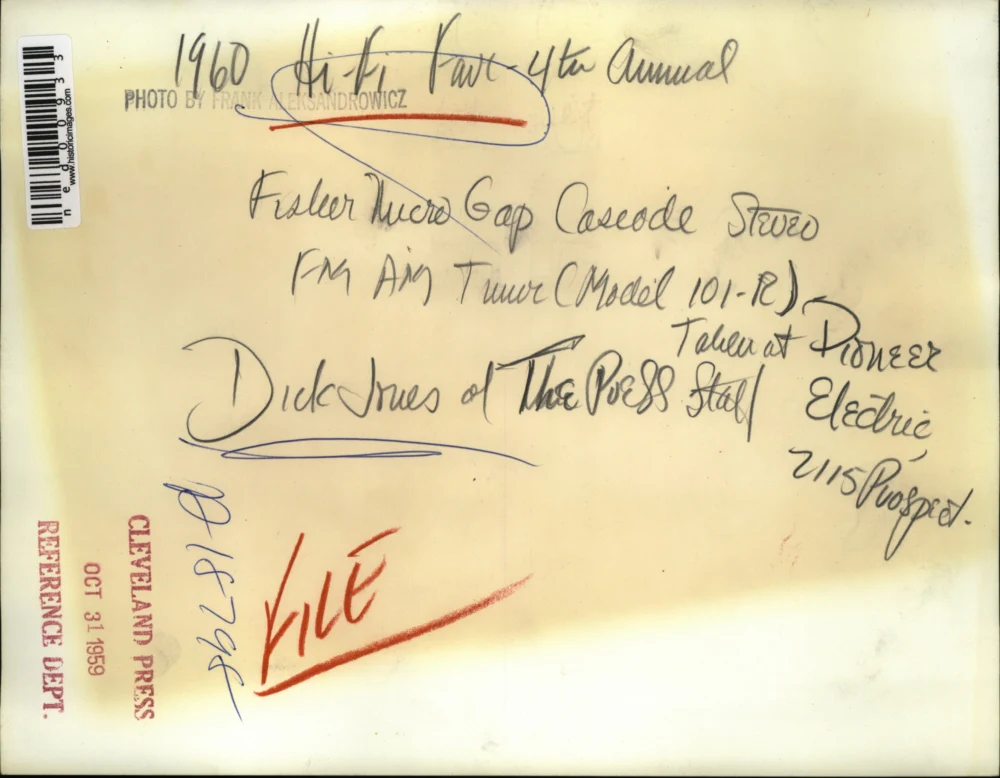 1960 Hi-Fi Fair - 4th Annual
PHOTO BY FRANK ALEKSANDROWICZ
Fisher Micro Gap Cascode Stereo
FM AM Tuner (Model 101-R)
Taken at Pioneer
Electric,
2115 Prospect.
Dick Jones of The Press Staff
FILE
CLEVELAND PRESS
OCT 31 1959
REFERENCE DEPT.
www.historicimages.com